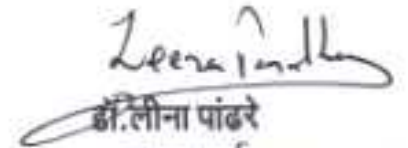 Leena Pandhare
डॉ.लीना पांढरे